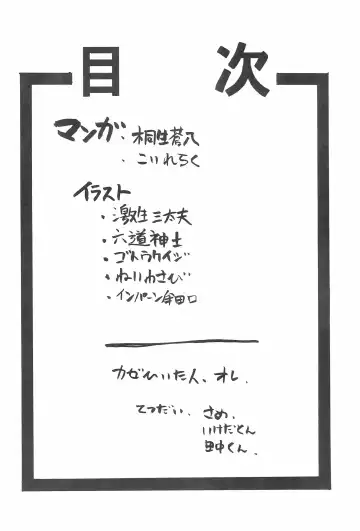 目次
マンガ・桐生蒼八
・こいれらく
イラスト
・激生三太夫
・六道神士
・ゴトウケイジ
・ねいわさび
・インパーン傘田口
カゼひいた人、オレ.
てつだい. さめ.
いけだくん
田中くん.